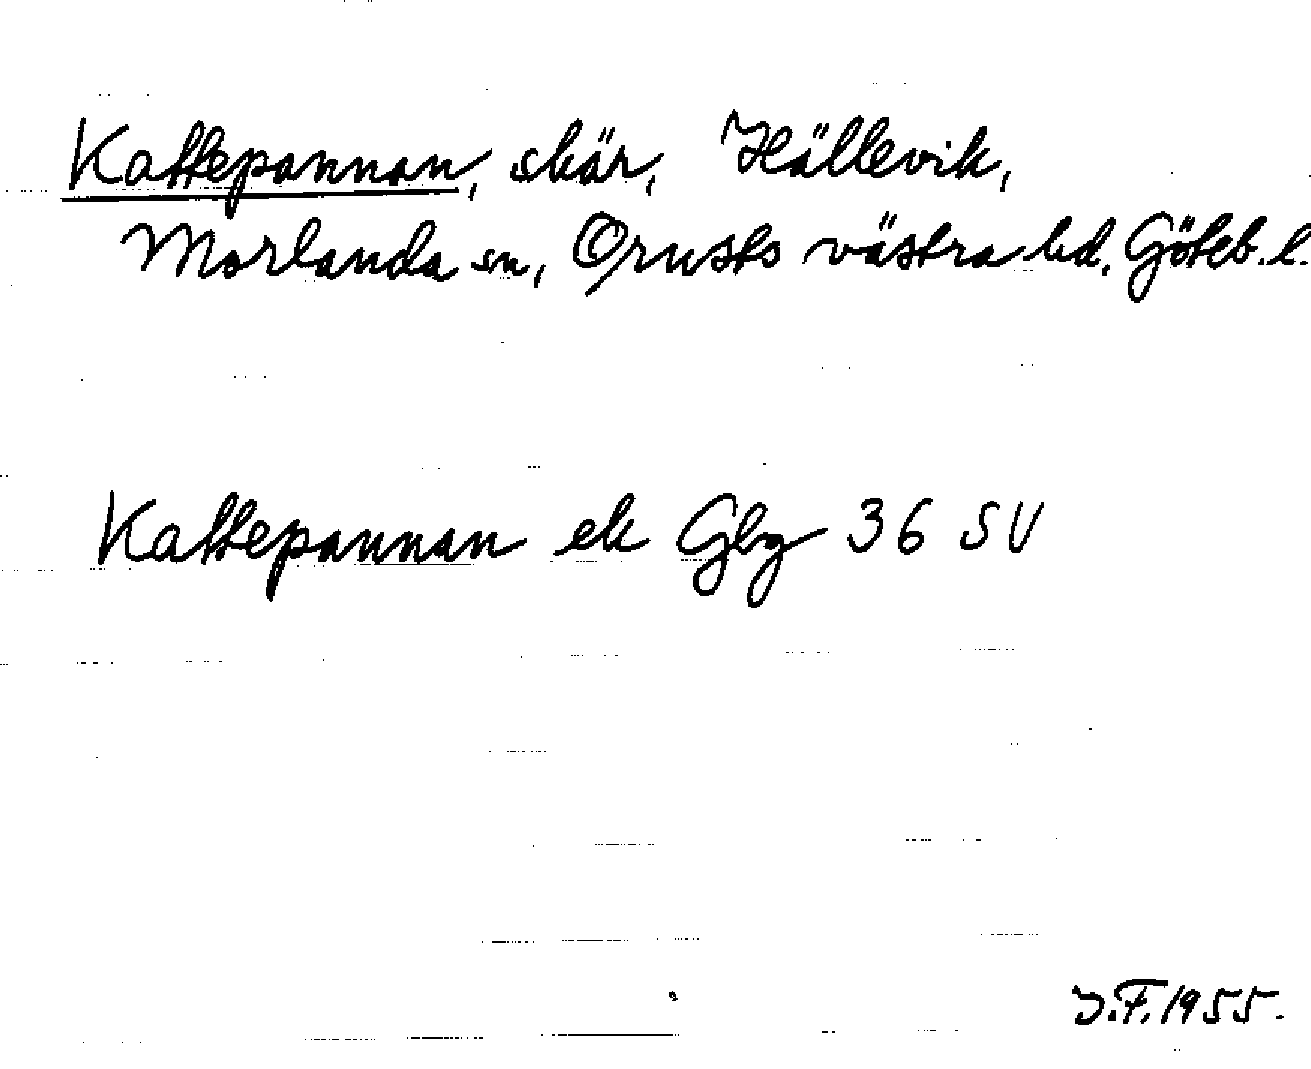 Kattepannan, skär, Hällevik,
Morlanda sn, Orusts västra hd, Göteb. l.
Kattepannan ek Gbg 36 SV
J.F. 1955.